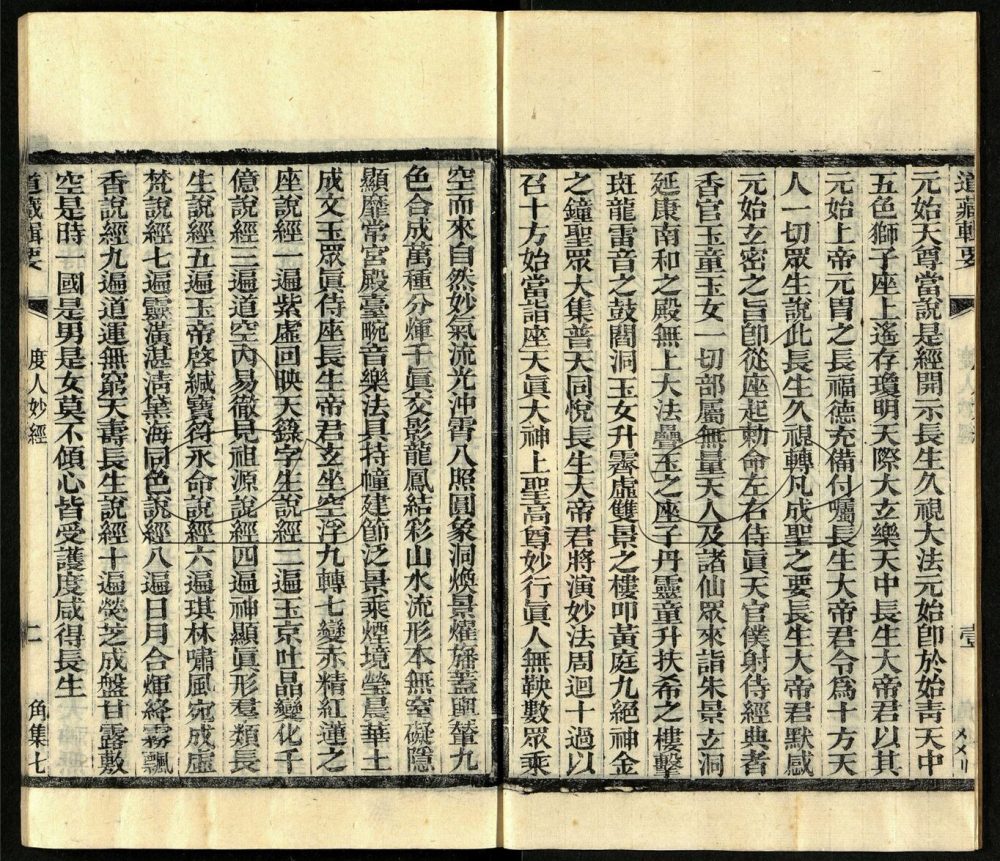 道藏輯要
元始天尊當說是經開示長生久視大法元始卽於始青天中
五色獅子座上遙存瓊明天際大立樂天中長生大帝君以其
元始上帝元胄之長福德充備付囑長生大帝君令爲十方天
人一切眾生說此長生久視轉凡成聖之要長生大帝君默感
元始立密之旨卽從座起勅命左右侍眞天官僕射侍經典者
香官玉童玉女一切部屬無量天人及諸仙眾來詣朱景立洞
延康南和之殿無上大法疊玉之座子丹靈童升扶希之樓擊
斑龍雷音之鼓闓洞玉女升霽虛雙景之樓叩黃庭九絕神金
之鐘聖眾大集普天同悅長生大帝君將演妙法周迴十過以
召十方始當詣座天眞大神上聖高尊妙行眞人無鞅數眾乘
空而來自然妙氣流光沖霄八照圓象洞煥景燿旛蓋輿輦九
色合成萬種分煇千眞交影龍鳳結彩山水流形本無窒礙隱
顯靡常宮殿臺畹音樂法具持幢建節泛景乘煙境瑩晨華土
成文玉眾眞侍座長生帝君玄坐空浮九轉七變赤精紅蓮之
座說經一遍紫虛回映天錄字生說經二遍玉京吐晶變化千
億說經三遍道空內易徹見祖源說經四遍神顯眞形羣類長
生說經五遍玉帝啓緘寶符永命說經六遍琪林嘯風宛成虛
梵說經七遍靈潢湛清黛海同色說經八遍日月合煇絳霧飄
香說經九遍道運無窮天壽長生說經十遍熒芝成盤甘露敷
空是時一國是男是女莫不傾心皆受護度咸得長生
道藏輯要 度人妙經 二 角集七